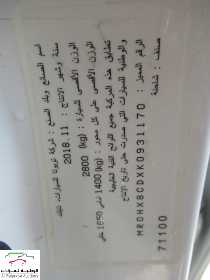 اسم الصانع وبلد الصنع : شركة تويوتا للسيارات، تايلند
سنة وشهر الانتاج : 2018.11
الوزن الأقصى للسيارة : (kg) 2800
الوزن الأقصى على كل محور : (kg) 1400 امامي 1650 خلفي
تطابق هذه المركبة جميع اللوائح الفنية الخليجية
والوطنية للسيارات التي صدرت حتى تاريخ الانتاج
الرقم المميز : MR0HX8CDXK0931170
صنف : شاحنة
71100